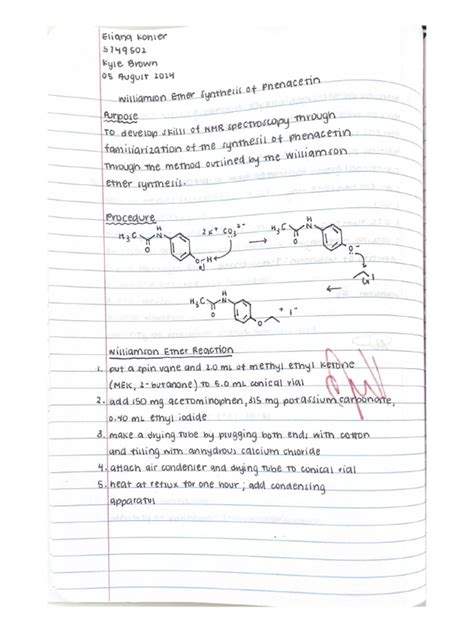 Eliana Kohler
5749502
Kyle Brown
05 August 2024
Williamson Ether Synthesis of Phenacetin
Purpose
To develop skills of NMR spectroscopy through
familiarization of the synthesis of phenacetin
through the method outlined by the Williamson
ether synthesis.
Procedure
H₃C N H O O-H 2K⁺ CO₃²⁻ → H₃C N H O O⁻
I
H₃C N H O O + I⁻
Williamson Ether Reaction
1. put a spin vane and 2.0 mL of methyl ethyl ketone
(MEK, 2-butanone) to 5.0 mL conical vial
2. add 150 mg acetominophen, 815 mg potassium carbonate,
0.40 mL ethyl iodide
3. make a drying tube by plugging both ends with cotton
and filling with anhydrous calcium chloride
4. attach air condenser and drying tube to conical vial
5. heat at reflux for one hour; add condensing
apparatus